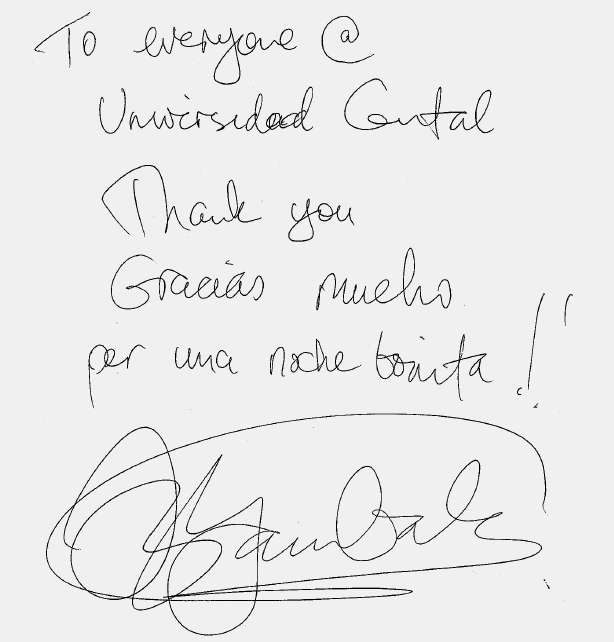 To everyone @
Universidad Cental
Thank you
Gracias mucho
per una noche bonita!!